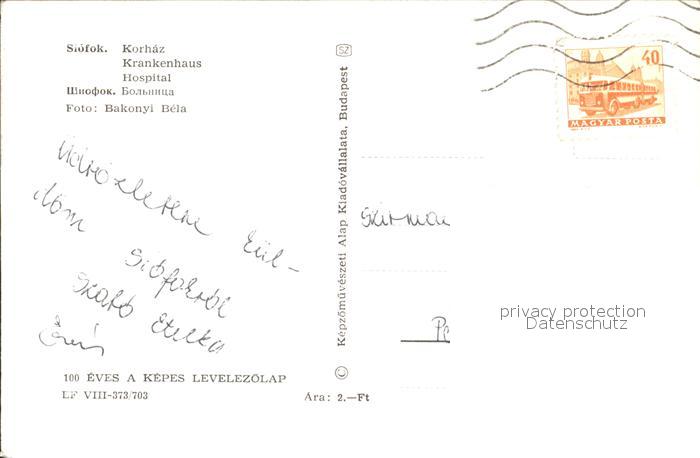 Siófok. Korház
Krankenhaus
Hospital
Шиофок. Больница
Foto: Bakonyi Béla
Üdvözletem kül-
döm Siófokról
Szabó Etelka
100 ÉVES A KÉPES LEVELEZŐLAP
LF VIII-373/703
Ára: 2.—Ft
SZ
Képzőművészeti Alap Kiadóvállalata, Budapest
40
MAGYAR POSTA
privacy protection
Datenschutz